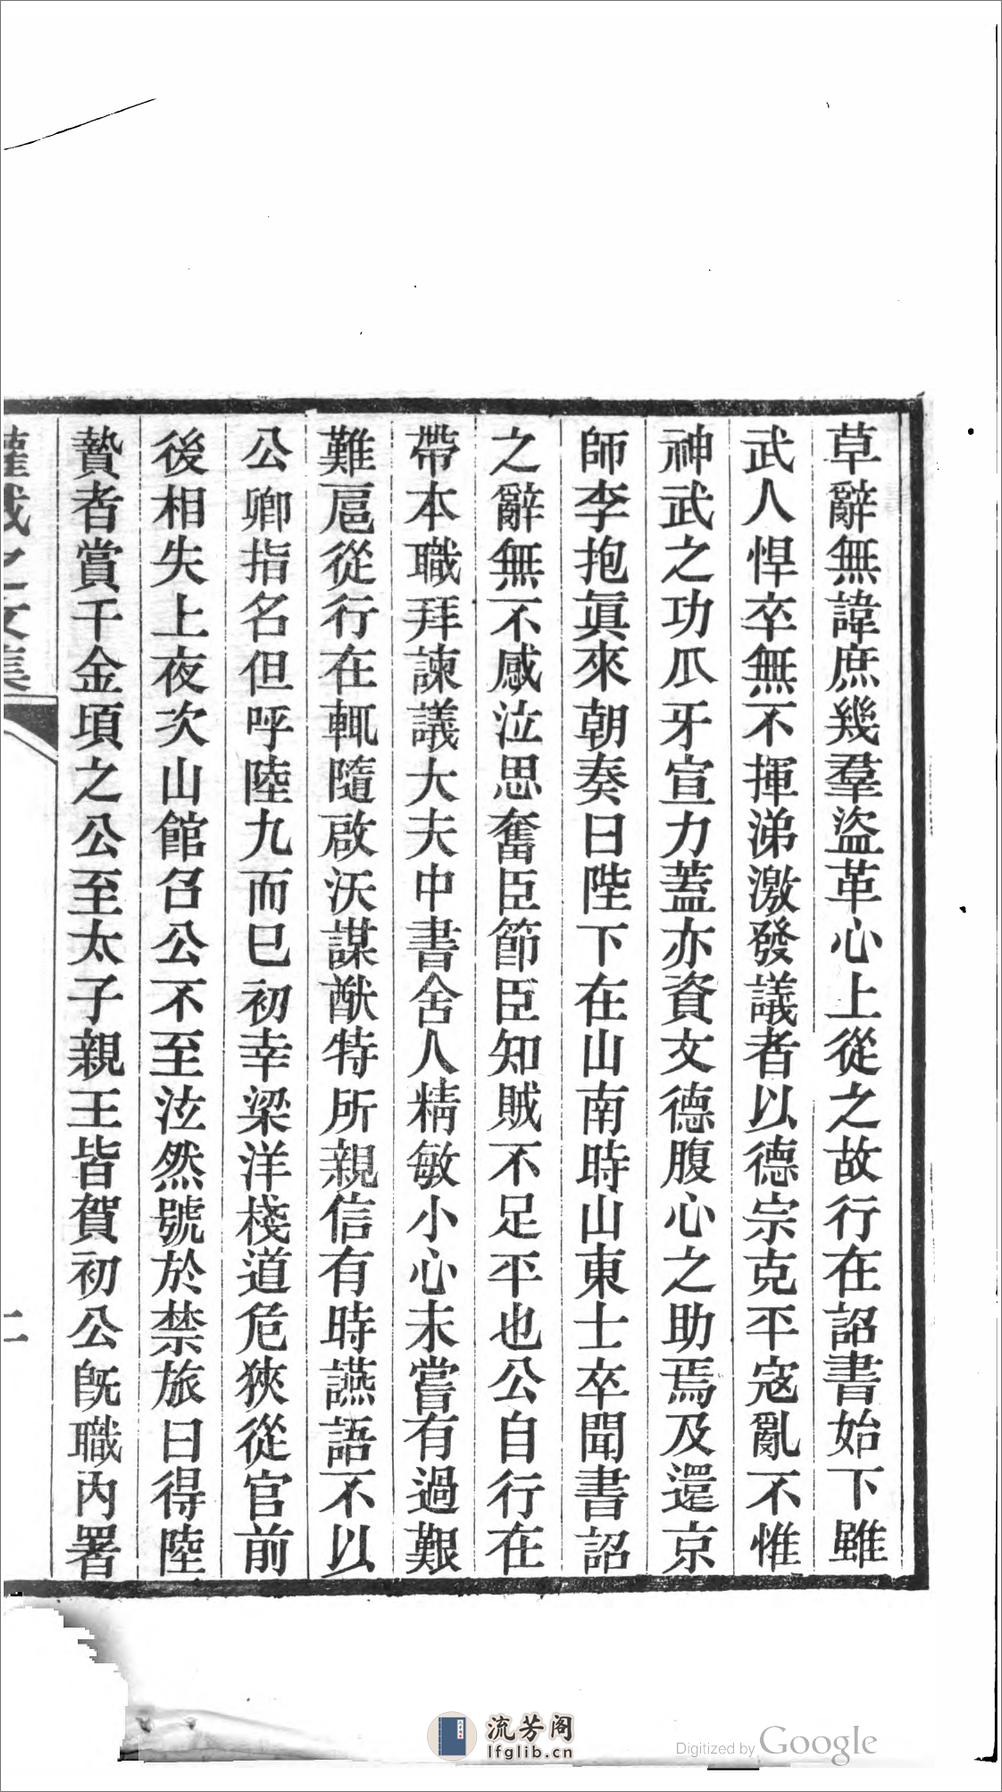 草辭無諱庶幾羣盜革心上從之故行在詔書始下雖
武人悍卒無不揮涕激發議者以德宗克平寇亂不惟
神武之功爪牙宣力蓋亦資文德腹心之助焉及還京
師李抱眞來朝奏曰陛下在山南時山東士卒聞書詔
之辭無不感泣思奮臣節臣知賊不足平也公自行在
帶本職拜諫議大夫中書舍人精敏小心未嘗有過艱
難扈從行在輒隨啟沃謀猷特所親信有時讌語不以
公卿指名但呼陸九而已初幸梁洋棧道危狹從官前
後相失上夜次山館召公不至泣然號於禁旅曰得陸
贄者賞千金頃之公至太子親王皆賀初公旣職內署
權載之文集
二
流芳阁
lfglib.cn
Digitized by Google